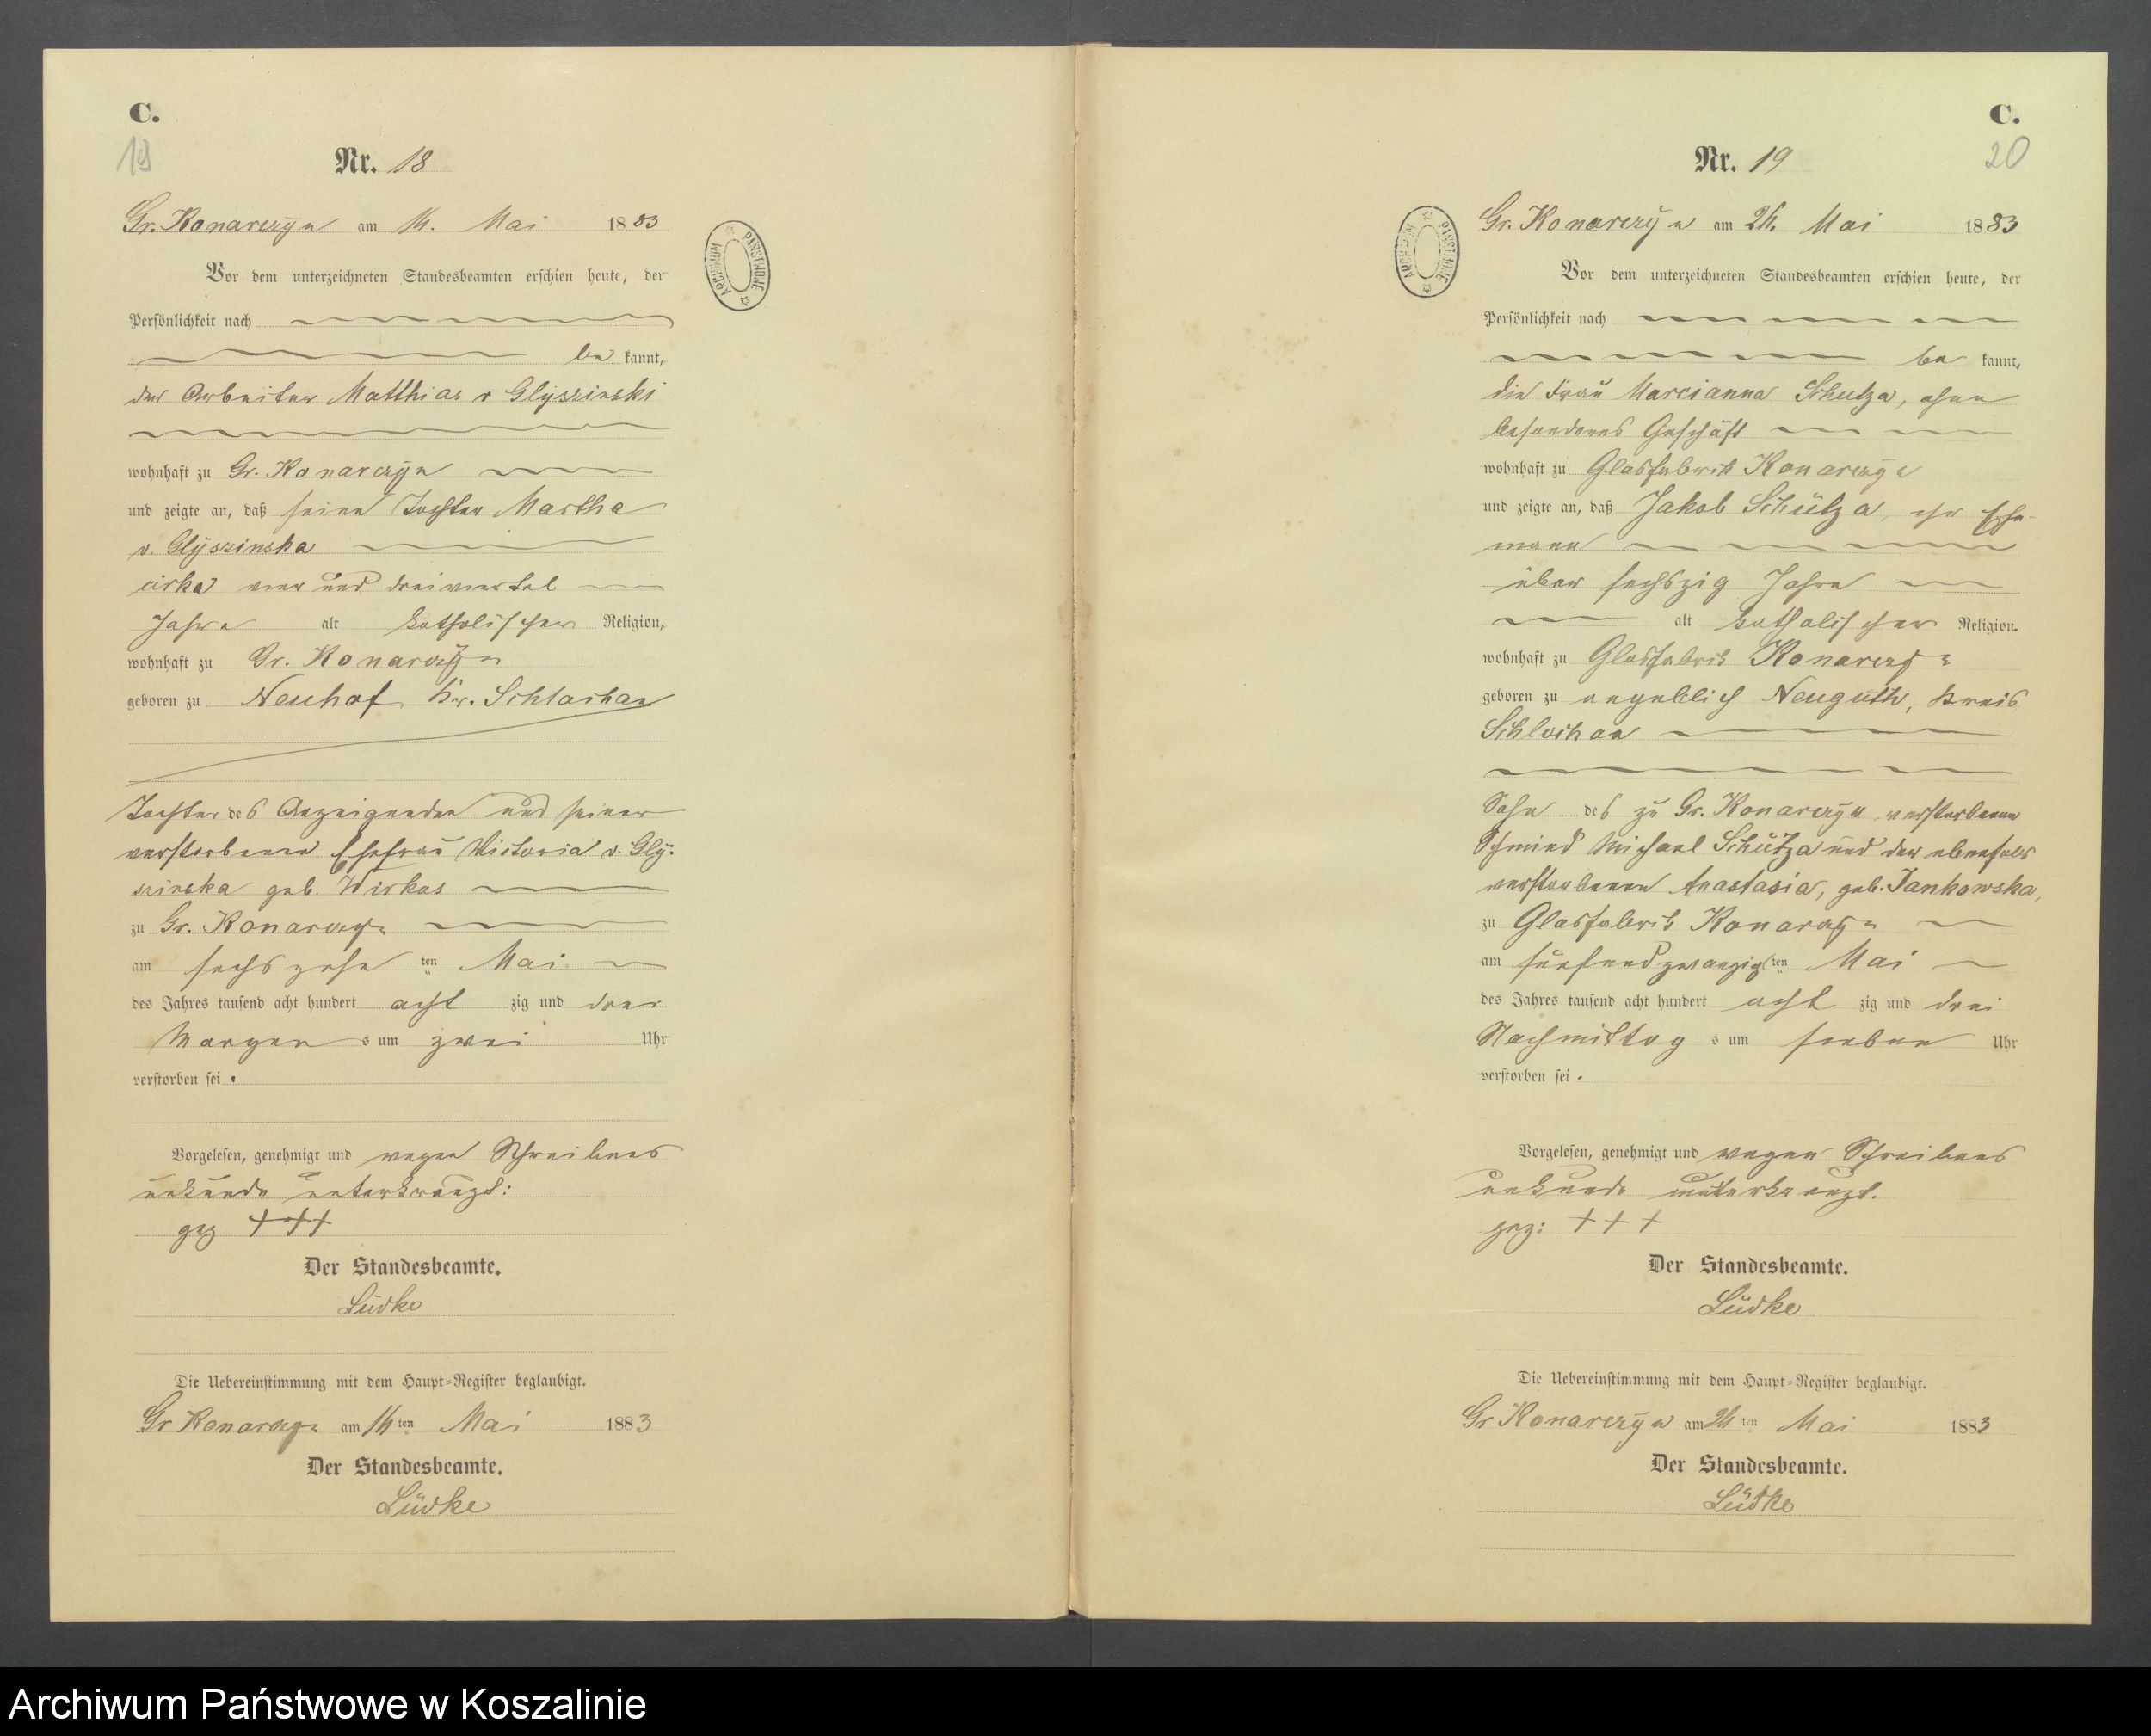 C.
19
Nr. 18
Gr. Konarczyn am 16. Mai 1883
Vor dem unterzeichneten Standesbeamten erschien heute, der
Persönlichkeit nach
be kannt,
der Arbeiter Matthias v Glyszinski
wohnhaft zu Gr. Konarczyn
und zeigte an, daß seine Tochter Martha
v. Glyszinska
cirka vier und dreiviertel
Jahre alt katholischer Religion,
wohnhaft zu Gr. Konarczyn
geboren zu Neuhof, Kr. Schlochau
Tochter des Anzeigenden und seiner
verstorbenen Ehefrau Victoria v. Gly-
szinska geb. Wirkus
zu Gr. Konarczyn
am sechszehn ten Mai
des Jahres tausend acht hundert acht zig und drei
Morgen s um zwei Uhr
verstorben sei.
Vorgelesen, genehmigt und wegen Schreibens
unkunde unterkreuzt:
gez +++
Der Standesbeamte.
Lüdke
Die Uebereinstimmung mit dem Haupt-Register beglaubigt.
Gr Konarczyn am 16ten Mai 1883
Der Standesbeamte.
Lüdke
ARCHIWUM PAŃSTWOWE
C.
20
Nr. 19
Gr. Konarczyn am 26. Mai 1883
Vor dem unterzeichneten Standesbeamten erschien heute, der
Persönlichkeit nach
be kannt,
die Frau Marcianna Schutza, ohne
besonderes Geschäft
wohnhaft zu Glasfabrik Konarczyn
und zeigte an, daß Jakob Schütza, ihr Ehe-
mann
über sechszig Jahre
alt katholischer Religion
wohnhaft zu Glasfabrik Konarczyn
geboren zu angeblich Neuguth, Kreis
Schlochau
Sohn des zu Gr. Konarczyn verstorbenen
Schmied Michael Schütza und der ebenfals
verstorbenen Anastasia, geb. Jankowska,
zu Glasfabrik Konarczyn
am fünfundzwanzig ten Mai
des Jahres tausend acht hundert acht zig und drei
Nachmittag s um sieben Uhr
verstorben sei.
Vorgelesen, genehmigt und wegen Schreibens
unkunde unterkreuzt.
gez: + + +
Der Standesbeamte.
Lüdke
Die Uebereinstimmung mit dem Haupt-Register beglaubigt.
Gr Konarczyn am 26 ten Mai 1883
Der Standesbeamte.
Lüdke
ARCHIWUM PAŃSTWOWE
Archiwum Państwowe w Koszalinie